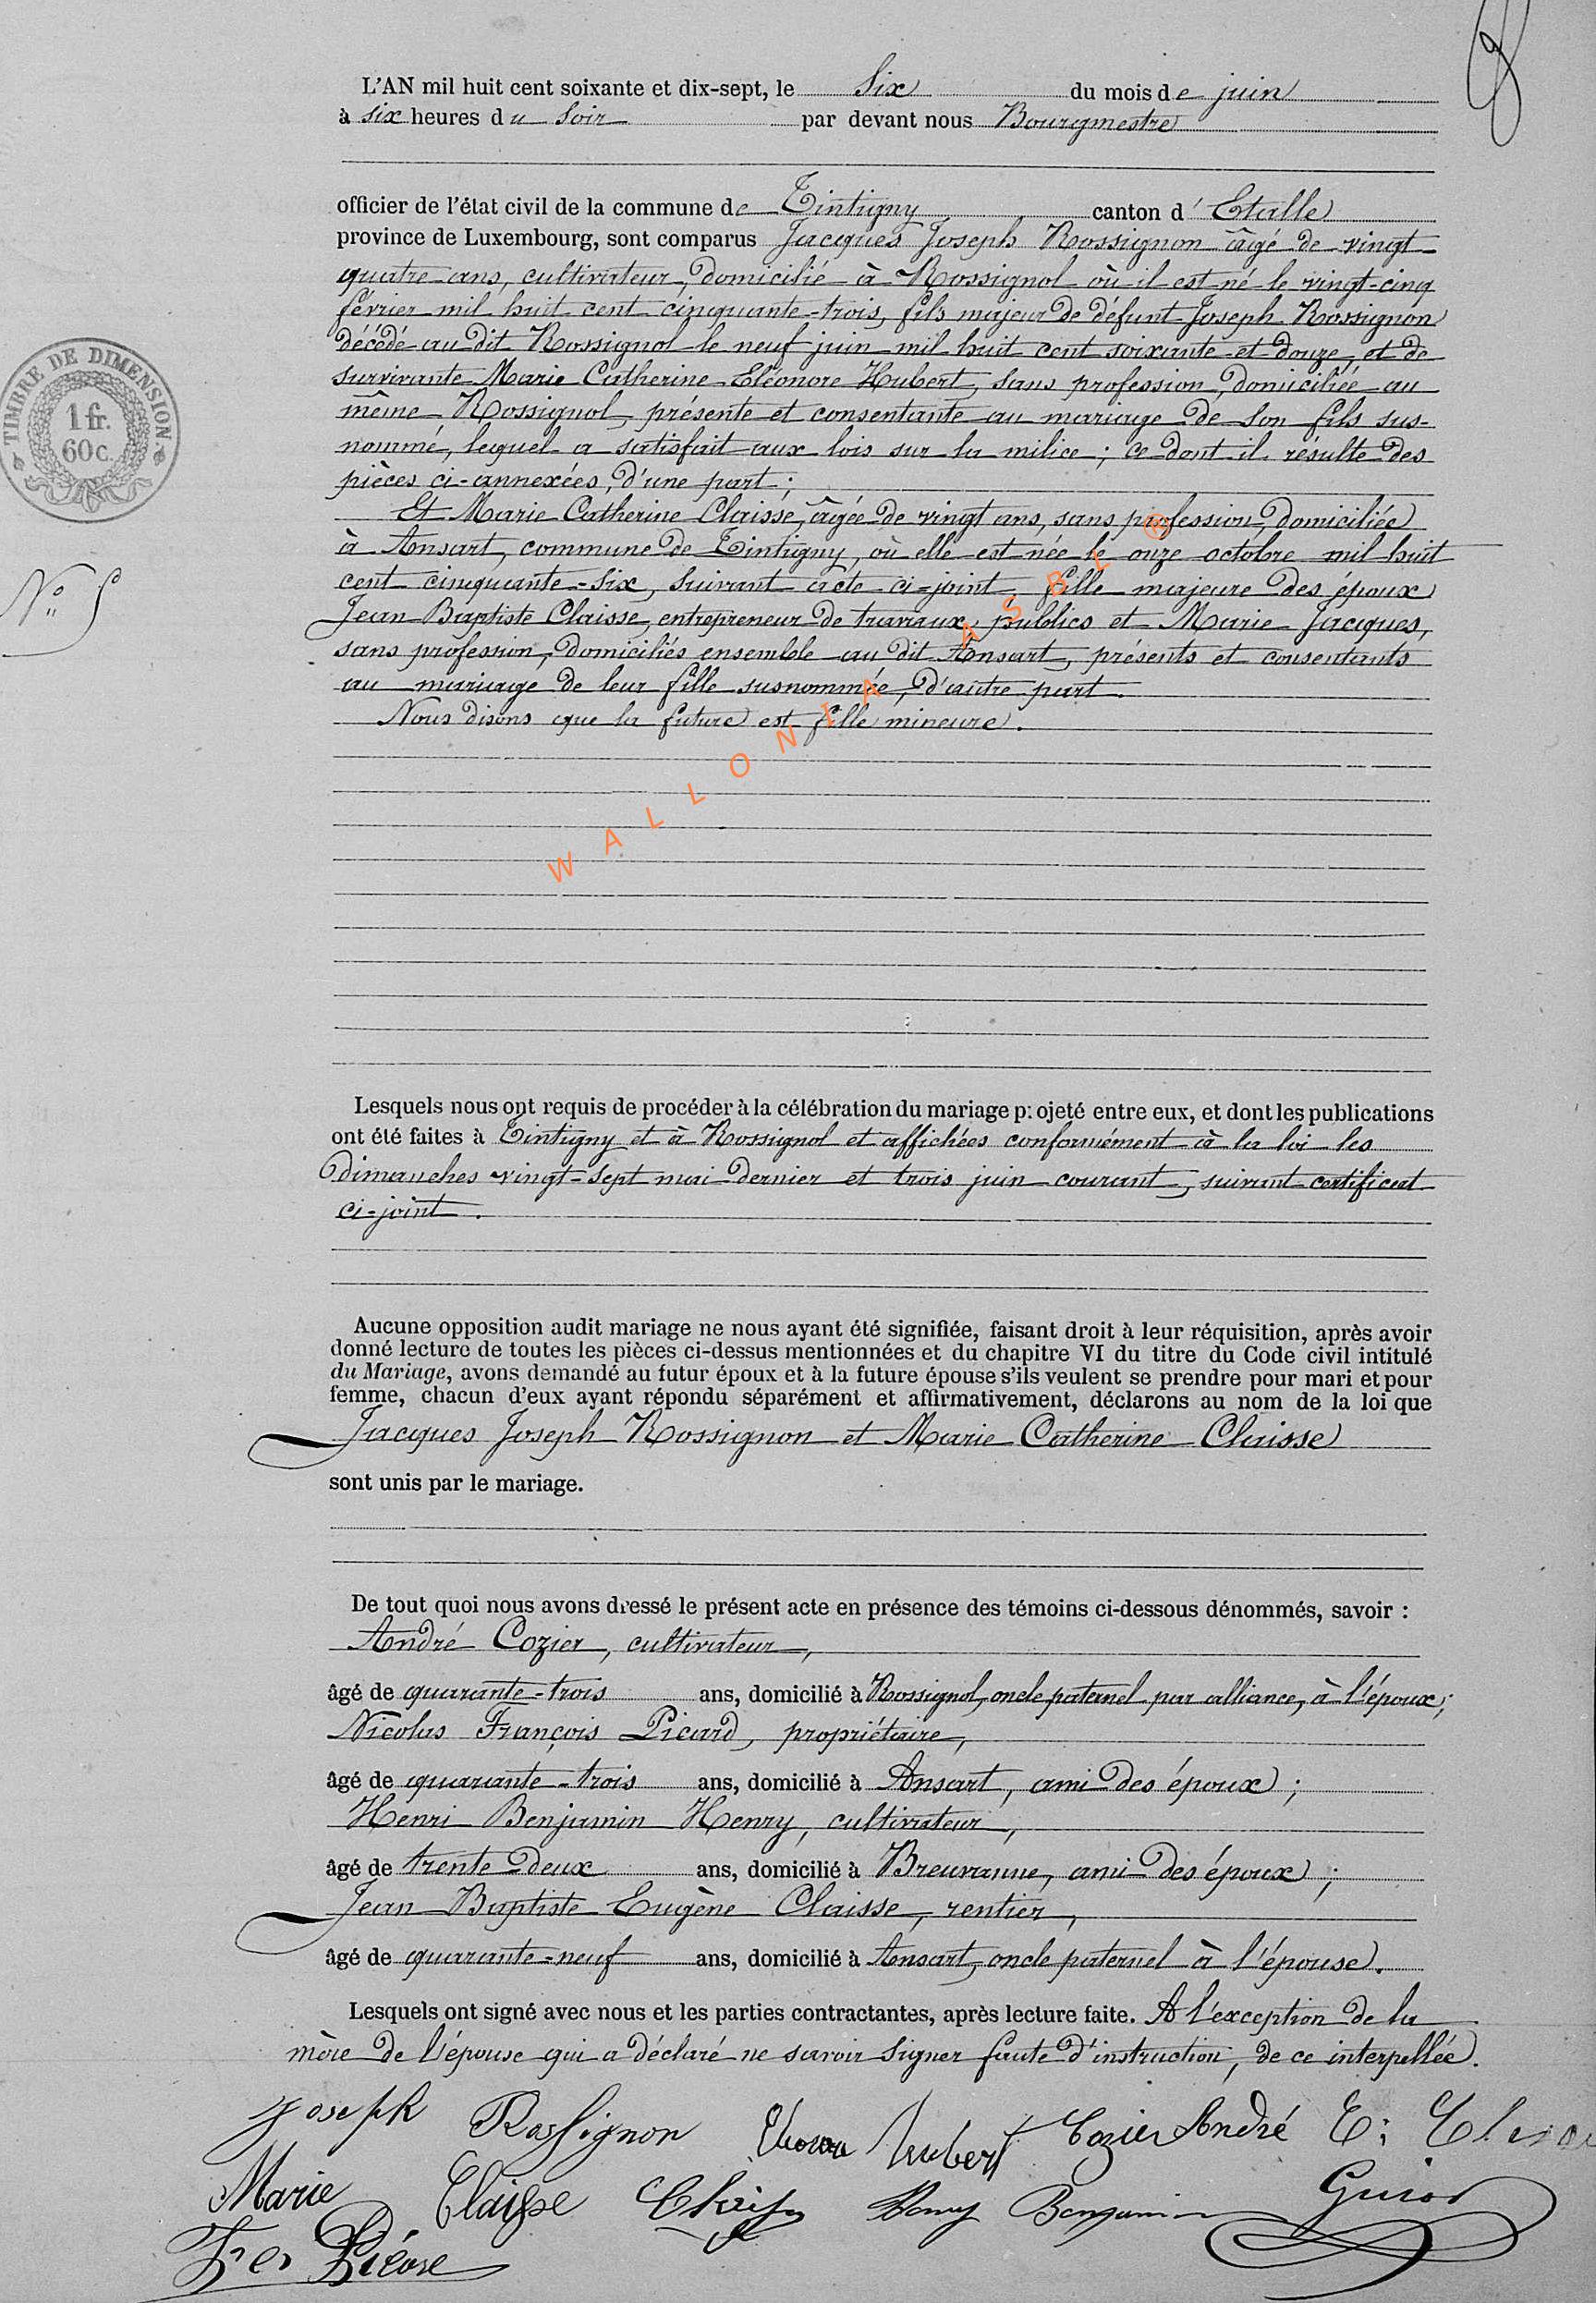 L'AN mil huit cent soixante et dix-sept, le Six du mois de juin
à six heures du soir par devant nous Bourgmestre
officier de l'état civil de la commune de Tintigny canton d'Etalle
province de Luxembourg, sont comparus Jacques Joseph Rossignon âgé de vingt
quatre ans, cultivateur, domicilié à Rossignol où il est né le vingt-cinq
février mil huit cent cinquante-trois, fils majeur de défunt Joseph Rossignon
décédé au dit Rossignol le neuf juin mil huit cent soixante et douze, et de
survivante Marie Catherine Eléonore Hubert, sans profession, domiciliée au
même Rossignol, présente et consentante au mariage de son fils sus-
nommé, lequel a satisfait aux lois sur la milice; ce dont il résulte des
pièces ci-annexées, d'une part;
Et Marie Catherine Claisse, âgée de vingt ans, sans profession, domiciliée
à Ansart, commune de Tintigny, où elle est née le onze octobre mil huit
cent cinquante-six, suivant acte ci-joint, fille majeure des époux
Jean Baptiste Claisse, entrepreneur de travaux publics et Marie Jacques,
sans profession, domiciliés ensemble au dit Ansart, présents et consentants
au mariage de leur fille susnommée, d'autre part.
Nous disons que la future est fille mineure.
TIMBRE DE DIMENSION.
1 fr.
60 c.
N° 5
WALLONIA ASBL ®
Lesquels nous ont requis de procéder à la célébration du mariage projeté entre eux, et dont les publications
ont été faites à Tintigny et à Rossignol et affichées conformément à la loi les
dimanches vingt-sept mai dernier et trois juin courant, suivant certificat
ci-joint.
Aucune opposition audit mariage ne nous ayant été signifiée, faisant droit à leur réquisition, après avoir
donné lecture de toutes les pièces ci-dessus mentionnées et du chapitre VI du titre du Code civil intitulé
du Mariage, avons demandé au futur époux et à la future épouse s'ils veulent se prendre pour mari et pour
femme, chacun d'eux ayant répondu séparément et affirmativement, déclarons au nom de la loi que
Jacques Joseph Rossignon et Marie Catherine Claisse
sont unis par le mariage.
De tout quoi nous avons dressé le présent acte en présence des témoins ci-dessous dénommés, savoir :
André Cozier, cultivateur,
âgé de quarante-trois ans, domicilié à Rossignol, oncle paternel par alliance, à l'époux;
Nicolas François Picard, propriétaire,
âgé de quarante-trois ans, domicilié à Ansart, ami des époux;
Henri Benjamin Henry, cultivateur,
âgé de trente deux ans, domicilié à Breuvanne, ami des époux;
Jean Baptiste Eugène Claisse, rentier,
âgé de quarante-neuf ans, domicilié à Ansart, oncle paternel à l'épouse.
Lesquels ont signé avec nous et les parties contractantes, après lecture faite. A l'exception de la
mère de l'épouse qui a déclaré ne savoir signer faute d'instruction, de ce interpellée.
Joseph Rossignon Hubert Cozier André E:
Marie Claisse Henry Benjamin